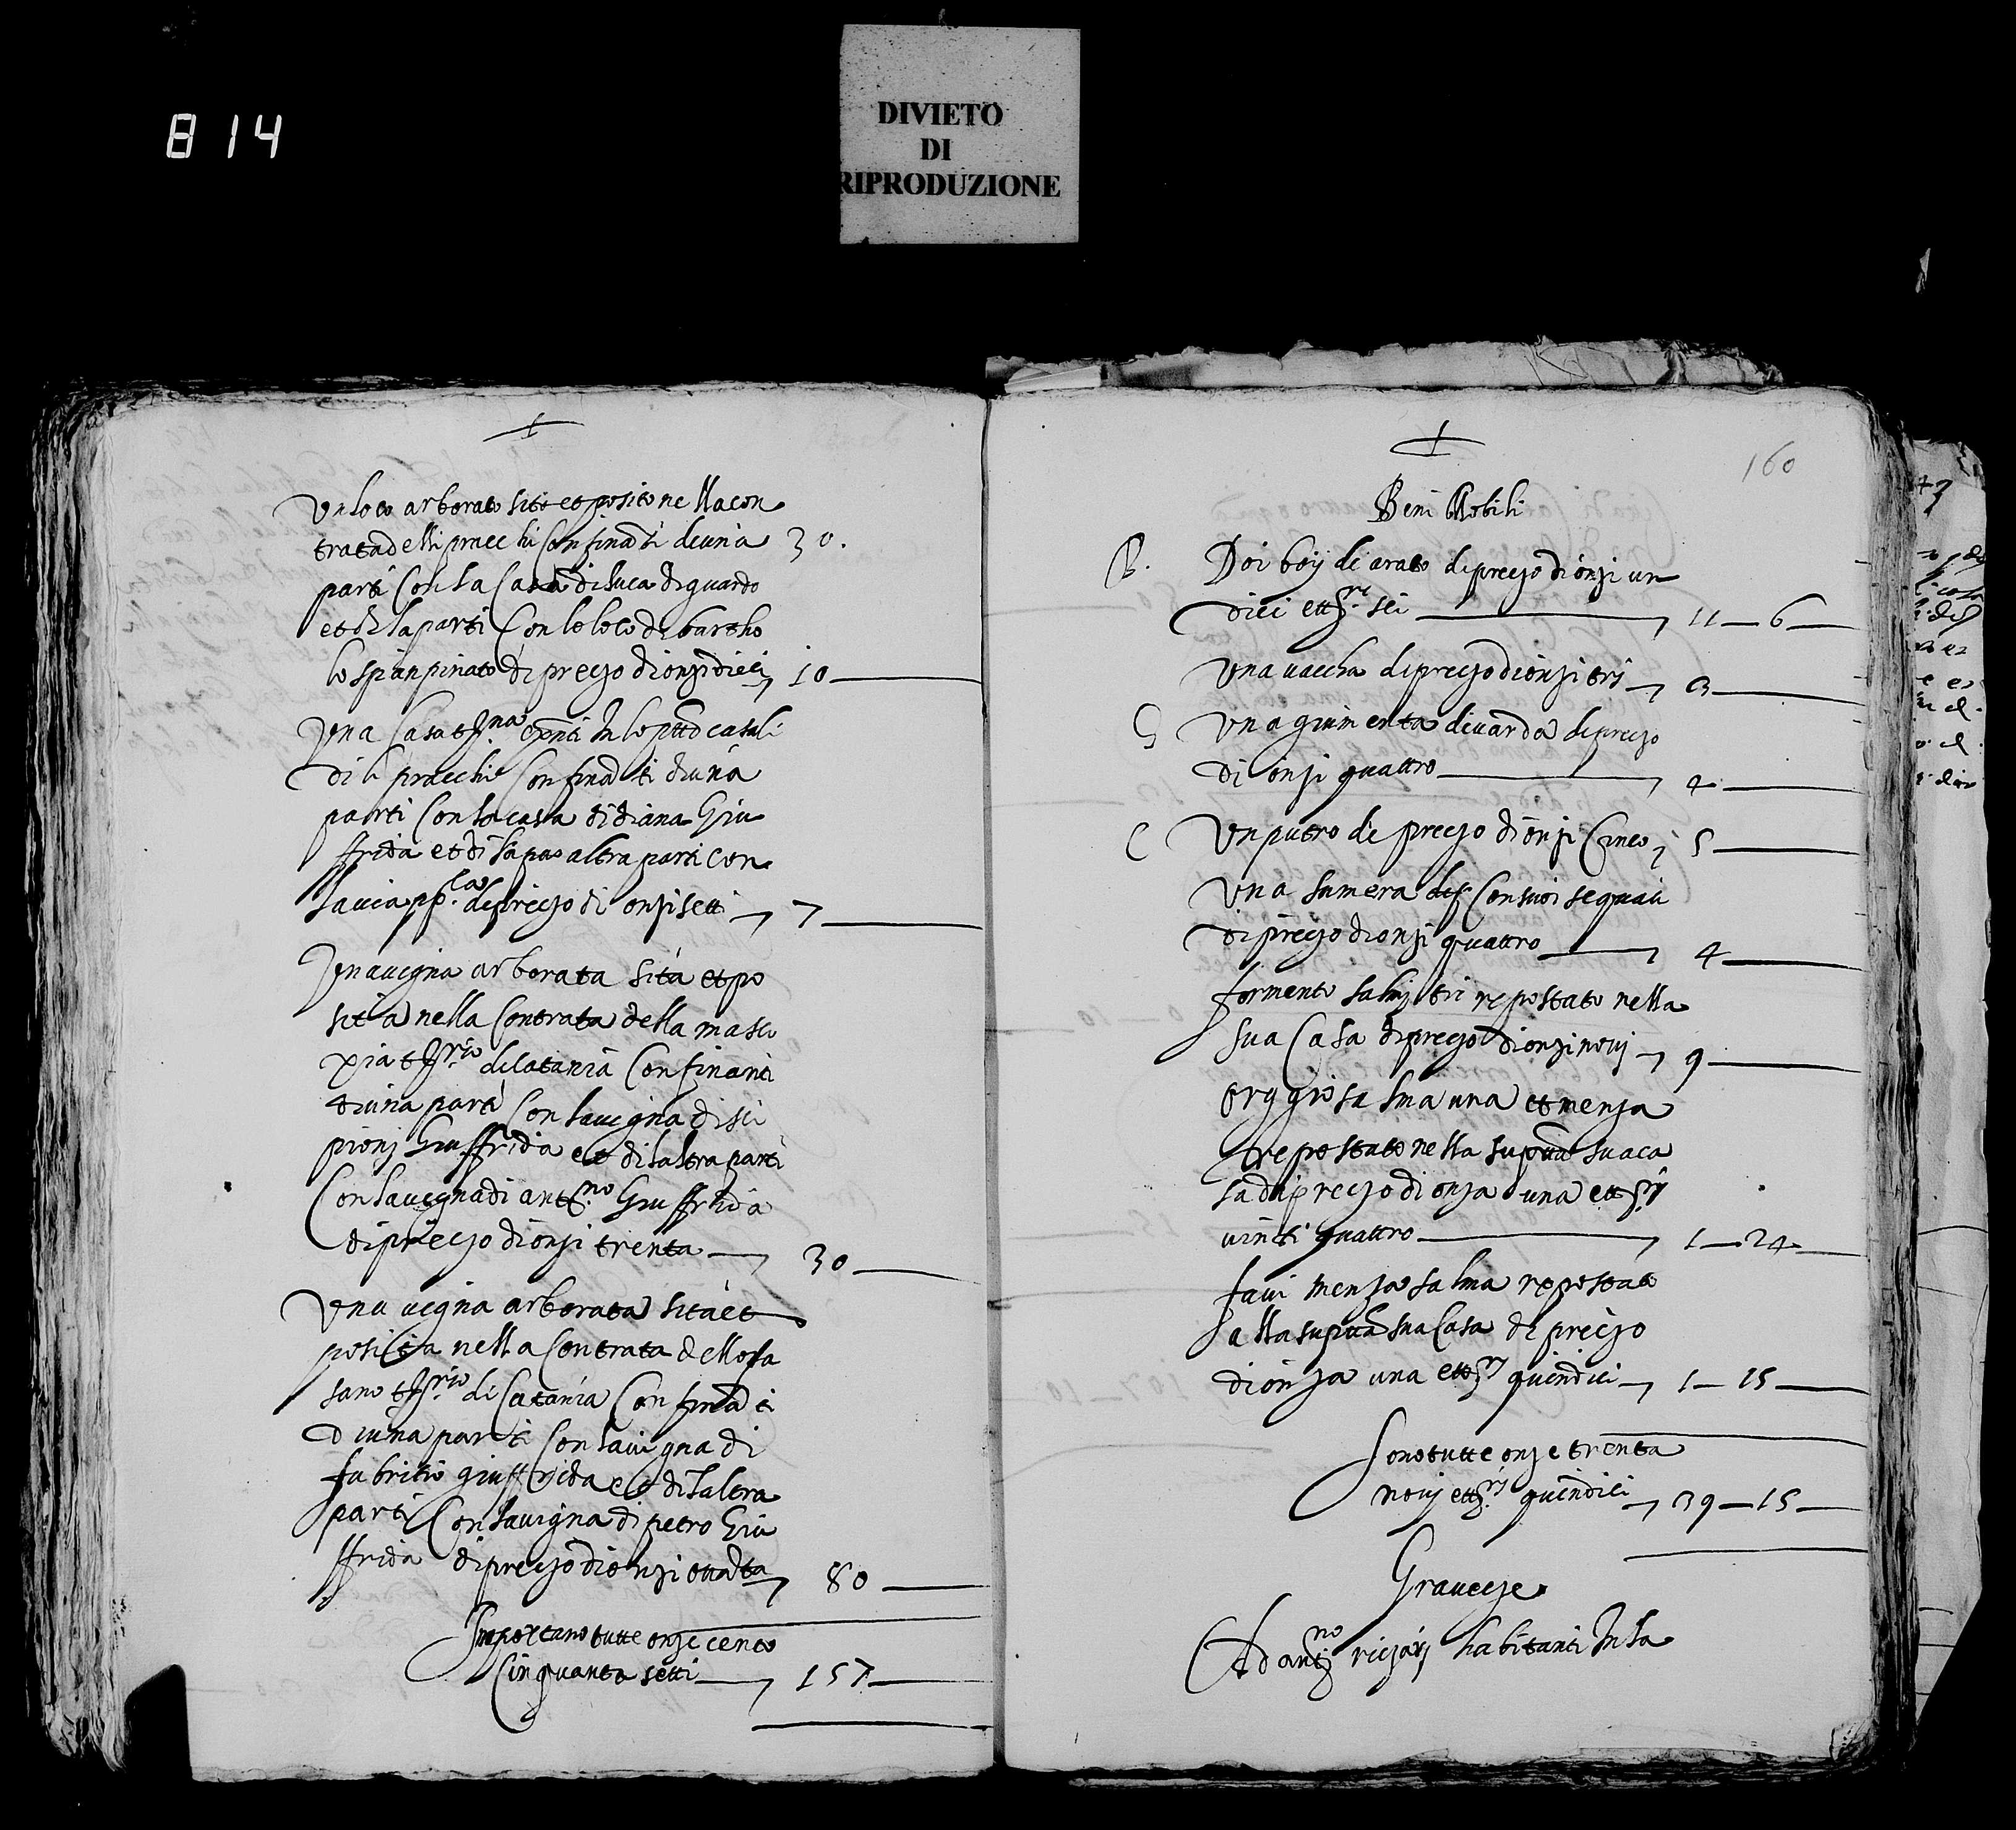 814
DIVIETO
DI
RIPRODUZIONE
Un loco arborato sito et posito nella con
trata delli pracchi Confinanti de una 30.
parti Con la Casa di luca di guardo
et di la parti Con lo loco di bartho
lo spinpinato di prezo di onzi dieci 10
Una Casa
di li pracchi Confinanti d una
parti Con la casa di diana Giu
ffrida et di la altra parti con
la via di prezo di onzi setti 7
Una vigna arborata sita et po
sita nella Contrata della mascu
di Catania Confinanti
d una parti Con la vigna di sci
pioni Giuffrida et di laltra parti
Con la vigna di ant.no Giuffrida
di prezo di onzi trenta 30
Una vigna arborata sita et
posita nella Contrata dello
sano di Catania Confinanti
d una parti Con la vigna di
fabritio giuffrida et di laltra
parti Con la vigna di petro Giu
ffrida di prezo di onzi ottanta 80
Importano tutte onze cento
Cinquanta setti 157
160
Beni Mobili
B. Doi boij di arato di prezo di onzi un
dici et tt.ri sei 11 6
Una vaccha di prezo di onzi tri 3
G Una giumenta di uarda di prezo
di onzi quattro 4
C Un putro di prezo di onzi Cinco 5
Una sumera Con suoi sequaci
di prezo di onzi quattro 4
formento salmi tri repostato nella
sua Casa di prezo di onzi novi 9
orggio salma una et menza
repostato nella sup.ta sua ca
sa di prezo di onza una et tt.ri
uinti quattro 1 24
favi menza salma repostat
alla sup.ta sua Casa di prezo
di onza una et tt.ri quindici 1 15
Sono tutte onze trenta
novi et tt.ri quindici 39 15
Gravezze
Ad ant.no habitanti In la